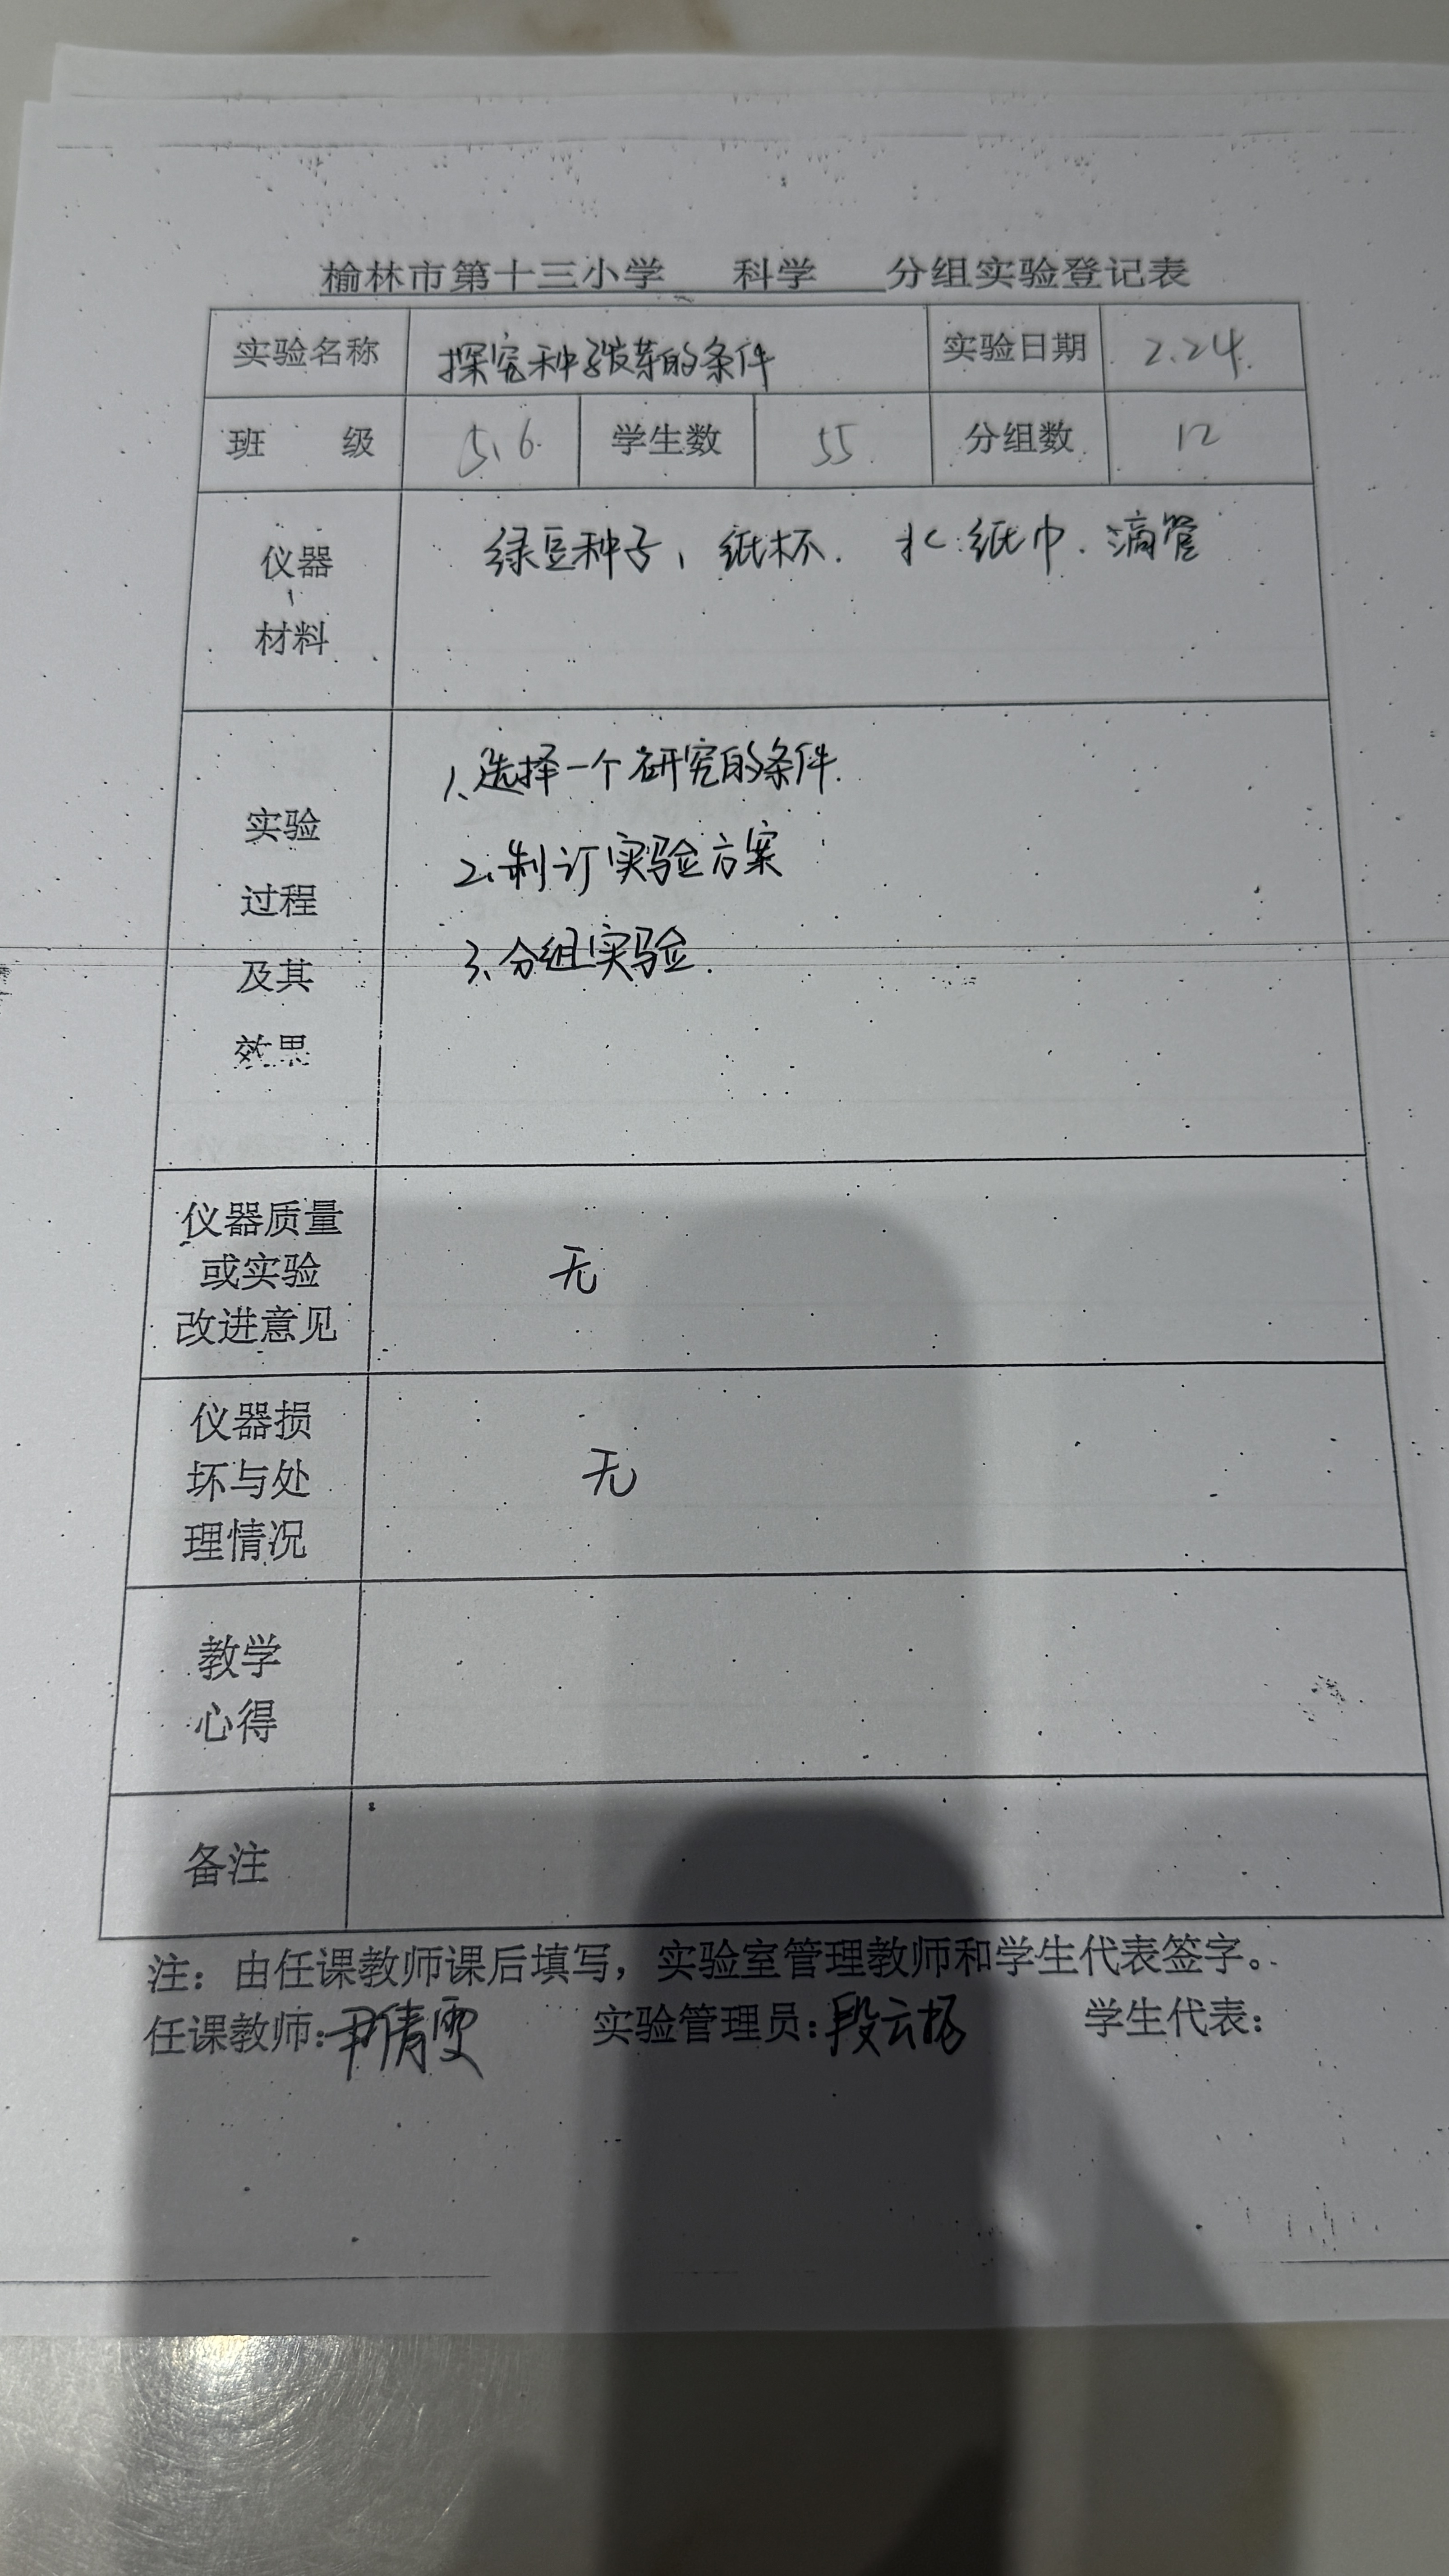 榆林市第十三小学 科学 分组实验登记表
实验名称 探究种子发芽的条件 实验日期 2.24.
班 级 5.6. 学生数 55. 分组数 12
仪器
、
材料
绿豆种子、纸杯. 水.纸巾.滴管
实验
过程
及其
效果
1、选择一个研究的条件.
2、制订实验方案
3、分组实验.
仪器质量
或实验
改进意见
无
仪器损
坏与处
理情况
无
教学
心得
备注
注：由任课教师课后填写，实验室管理教师和学生代表签字。
任课教师：尹倩雯 实验管理员：段云杨 学生代表：